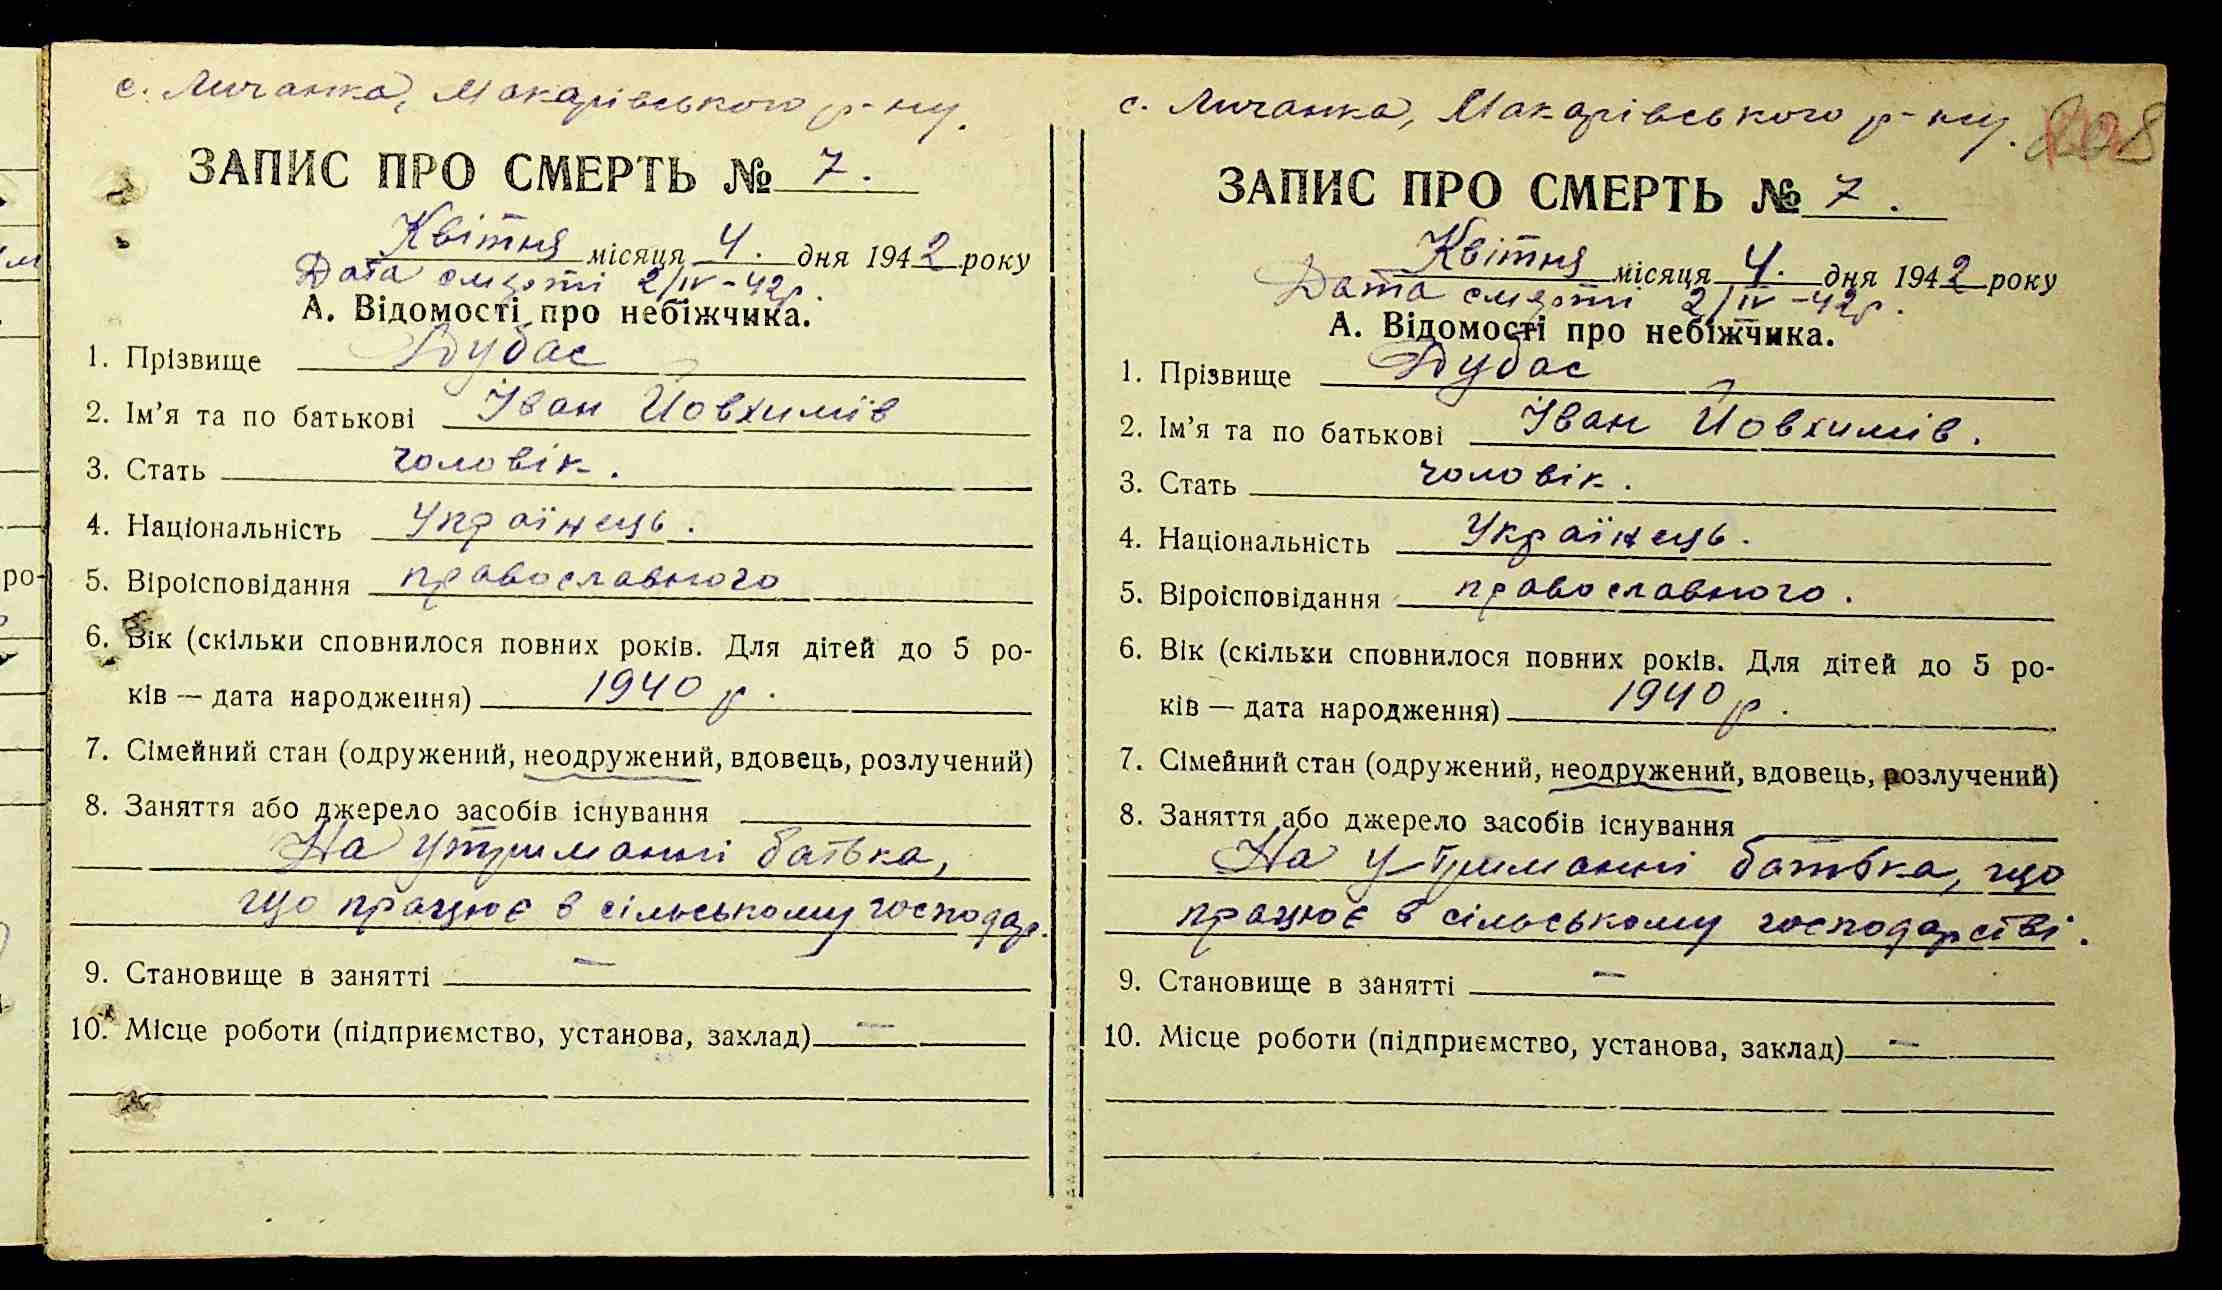 с. Личанка, Макарівського р-ну.
ЗАПИС ПРО СМЕРТЬ № 7.
Квітня місяця 4. дня 1942 року
Дата смерти 2/IV-42р.
А. Відомості про небіжчика.
1. Прізвище Дубас
2. Ім'я та по батькові Іван Йовхимів
3. Стать чоловік.
4. Національність Українець.
5. Віроісповідання православного
6. Вік (скільки сповнилося повних років. Для дітей до 5 ро-
ків — дата народження) 1940 р.
7. Сімейний стан (одружений, неодружений, вдовець, розлучений)
8. Заняття або джерело засобів існування
На утриманні батька,
що працює в сільському господар.
9. Становище в занятті —
10. Місце роботи (підприємство, установа, заклад) —
с. Личанка, Макарівського р-ну.
ЗАПИС ПРО СМЕРТЬ № 7.
Квітня місяця 4. дня 1942 року
Дата смерти 2/IV-42р.
А. Відомості про небіжчика.
1. Прізвище Дубас
2. Ім'я та по батькові Іван Йовхимів.
3. Стать чоловік.
4. Національність Українець.
5. Віроісповідання православного.
6. Вік (скільки сповнилося повних років. Для дітей до 5 ро-
ків — дата народження) 1940 р.
7. Сімейний стан (одружений, неодружений, вдовець, розлучений)
8. Заняття або джерело засобів існування
На утриманні батька, що
працює в сільському господарстві.
9. Становище в занятті —
10. Місце роботи (підприємство, установа, заклад) —